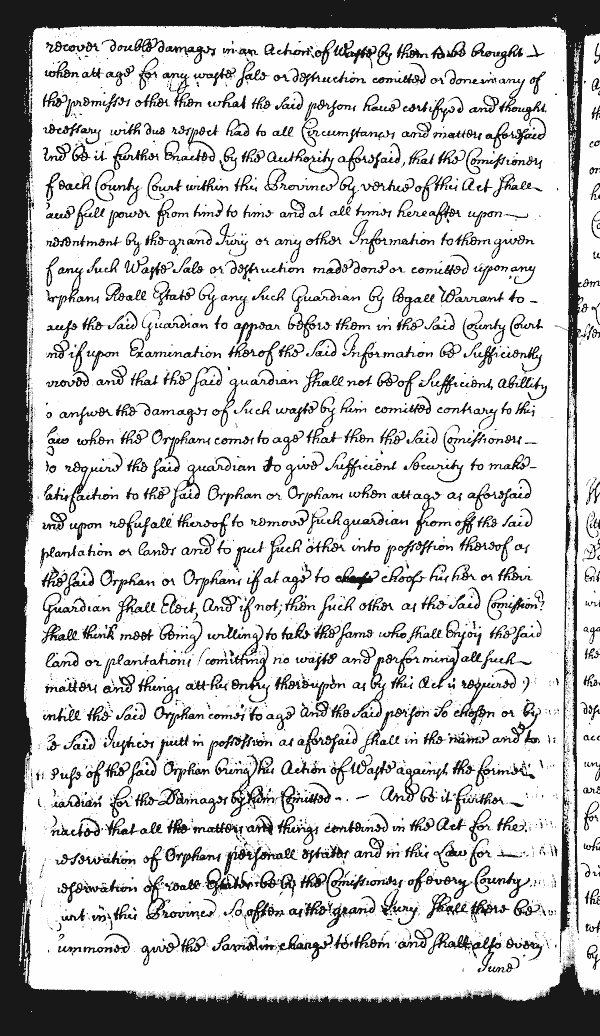 recover double damages in an Action of Waste by them to be brought
when att age for any waste sale or destruction comitted or done in any of
the premisses other then what the said persons have certifyed and thought
necessary with due respect had to all Circumstances and matters aforesaid
And be it further Enacted by the Authority aforesaid, that the Comissioners
f each County Court within this Province by vertue of this Act shall
aue full power from time to time and at all times hereafter upon
resentment by the grand Jury or any other Information to them given
f any such Waste Sale or destruction made done or comitted upon any
rphans Reall Estate by any such Guardian by legall Warrant to
ause the said Guardian to appear before them in the said County Court
nd if upon Examination therof the said Information be sufficiently
roved and that the said guardian shall not be of sufficient Abillity
o answer the damages of such waste by him comitted contrary to this
Law when the Orphans comes to age that then the said Comissioners
o require the said guardian to give sufficient security to make
satisfaction to the said Orphan or Orphans when att age as aforesaid
and upon refusall thereof to remove such guardian from off the said
plantation or lands and to put such other into possession thereof as
the said Orphan or Orphans if at age to choose his her or their
Guardian shall Elect, And if not, then such other as the said Comission.rs
shall think meet being willing to take the same who shall Enjoy the said
land or plantations (comitting no waste and performing all such
matters and things att his entry thereupon as by this Act is required)
untill the said Orphan comes to age And the said person so chosen or by
e said Justices putt in possession as aforesaid shall in the name and to
e use of the said Orphan bring his Action of Waste against the former
uardian for the Damages by him Comitted. — And be it further
nacted that all the matters and things conteined in the Act for the
reservation of Orphans personall estates and in this Law for
reservation of reall Estates be by the Comissioners of every County
urt in this Province so often as the grand Jury shall there be
ummoned give the same in charge to them and shall also every
June